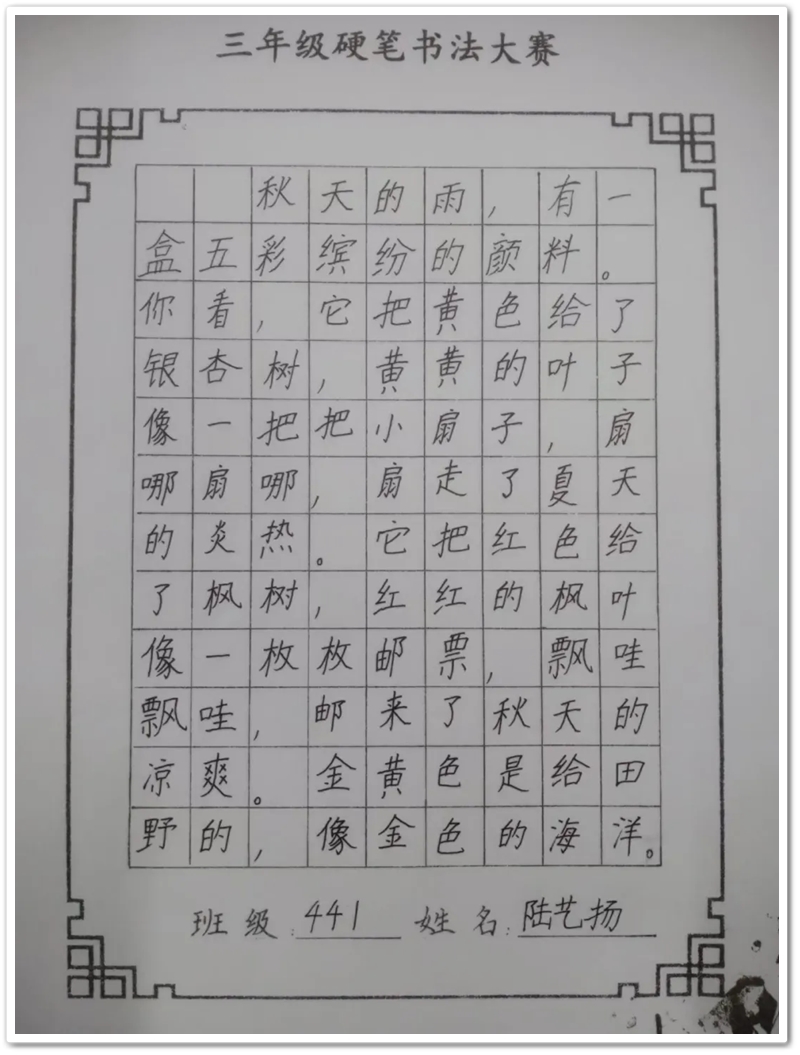 三年级硬笔书法大赛
秋天的雨，有一
盒五彩缤纷的颜料。
你看，它把黄色给了
银杏树，黄黄的叶子
像一把把小扇子，扇
哪扇哪，扇走了夏天
的炎热。它把红色给
了枫树，红红的枫叶
像一枚枚邮票，飘哇
飘哇，邮来了秋天的
凉爽。金黄色是给田
野的，像金色的海洋。
班级:441 姓名:陆艺扬